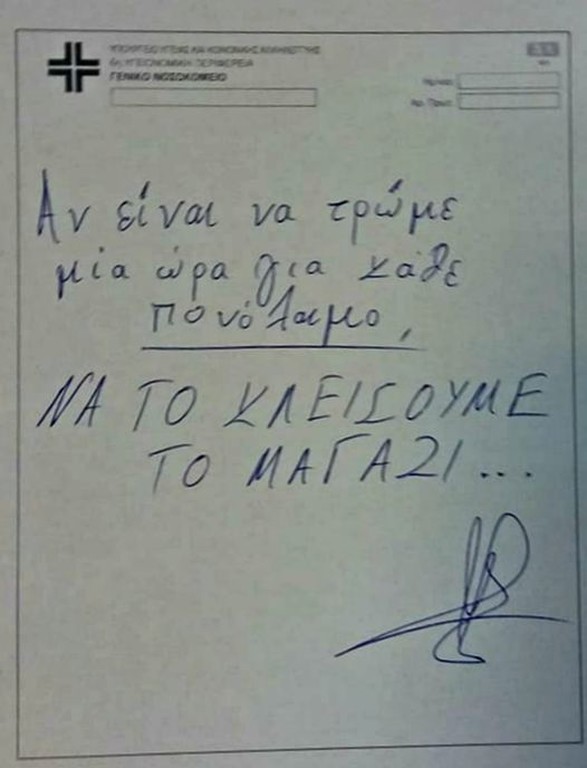 ΥΠΟΥΡΓΕΙΟ ΥΓΕΙΑΣ ΚΑΙ ΚΟΙΝΩΝΙΚΗΣ ΑΛΛΗΛΕΓΓΥΗΣ
6η ΥΓΕΙΟΝΟΜΙΚΗ ΠΕΡΙΦΕΡΕΙΑ
ΓΕΝΙΚΟ ΝΟΣΟΚΟΜΕΙΟ
Αν είναι να τρώμε
μία ώρα για κάθε
πονόλαιμο,
ΝΑ ΤΟ ΚΛΕΙΣΟΥΜΕ
ΤΟ ΜΑΓΑΖΙ...